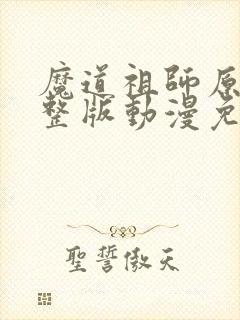 魔道祖師原
整版動漫免
聖誓傲天